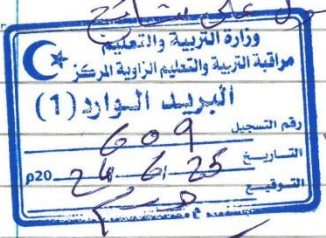 على نتائج
وزارة التربية والتعليم
مراقبة التربية والتعليم الزاوية المركز
البريد الوارد (1)
رقم التسجيل 609
التاريخ 24 6 25 20م
التوقيع